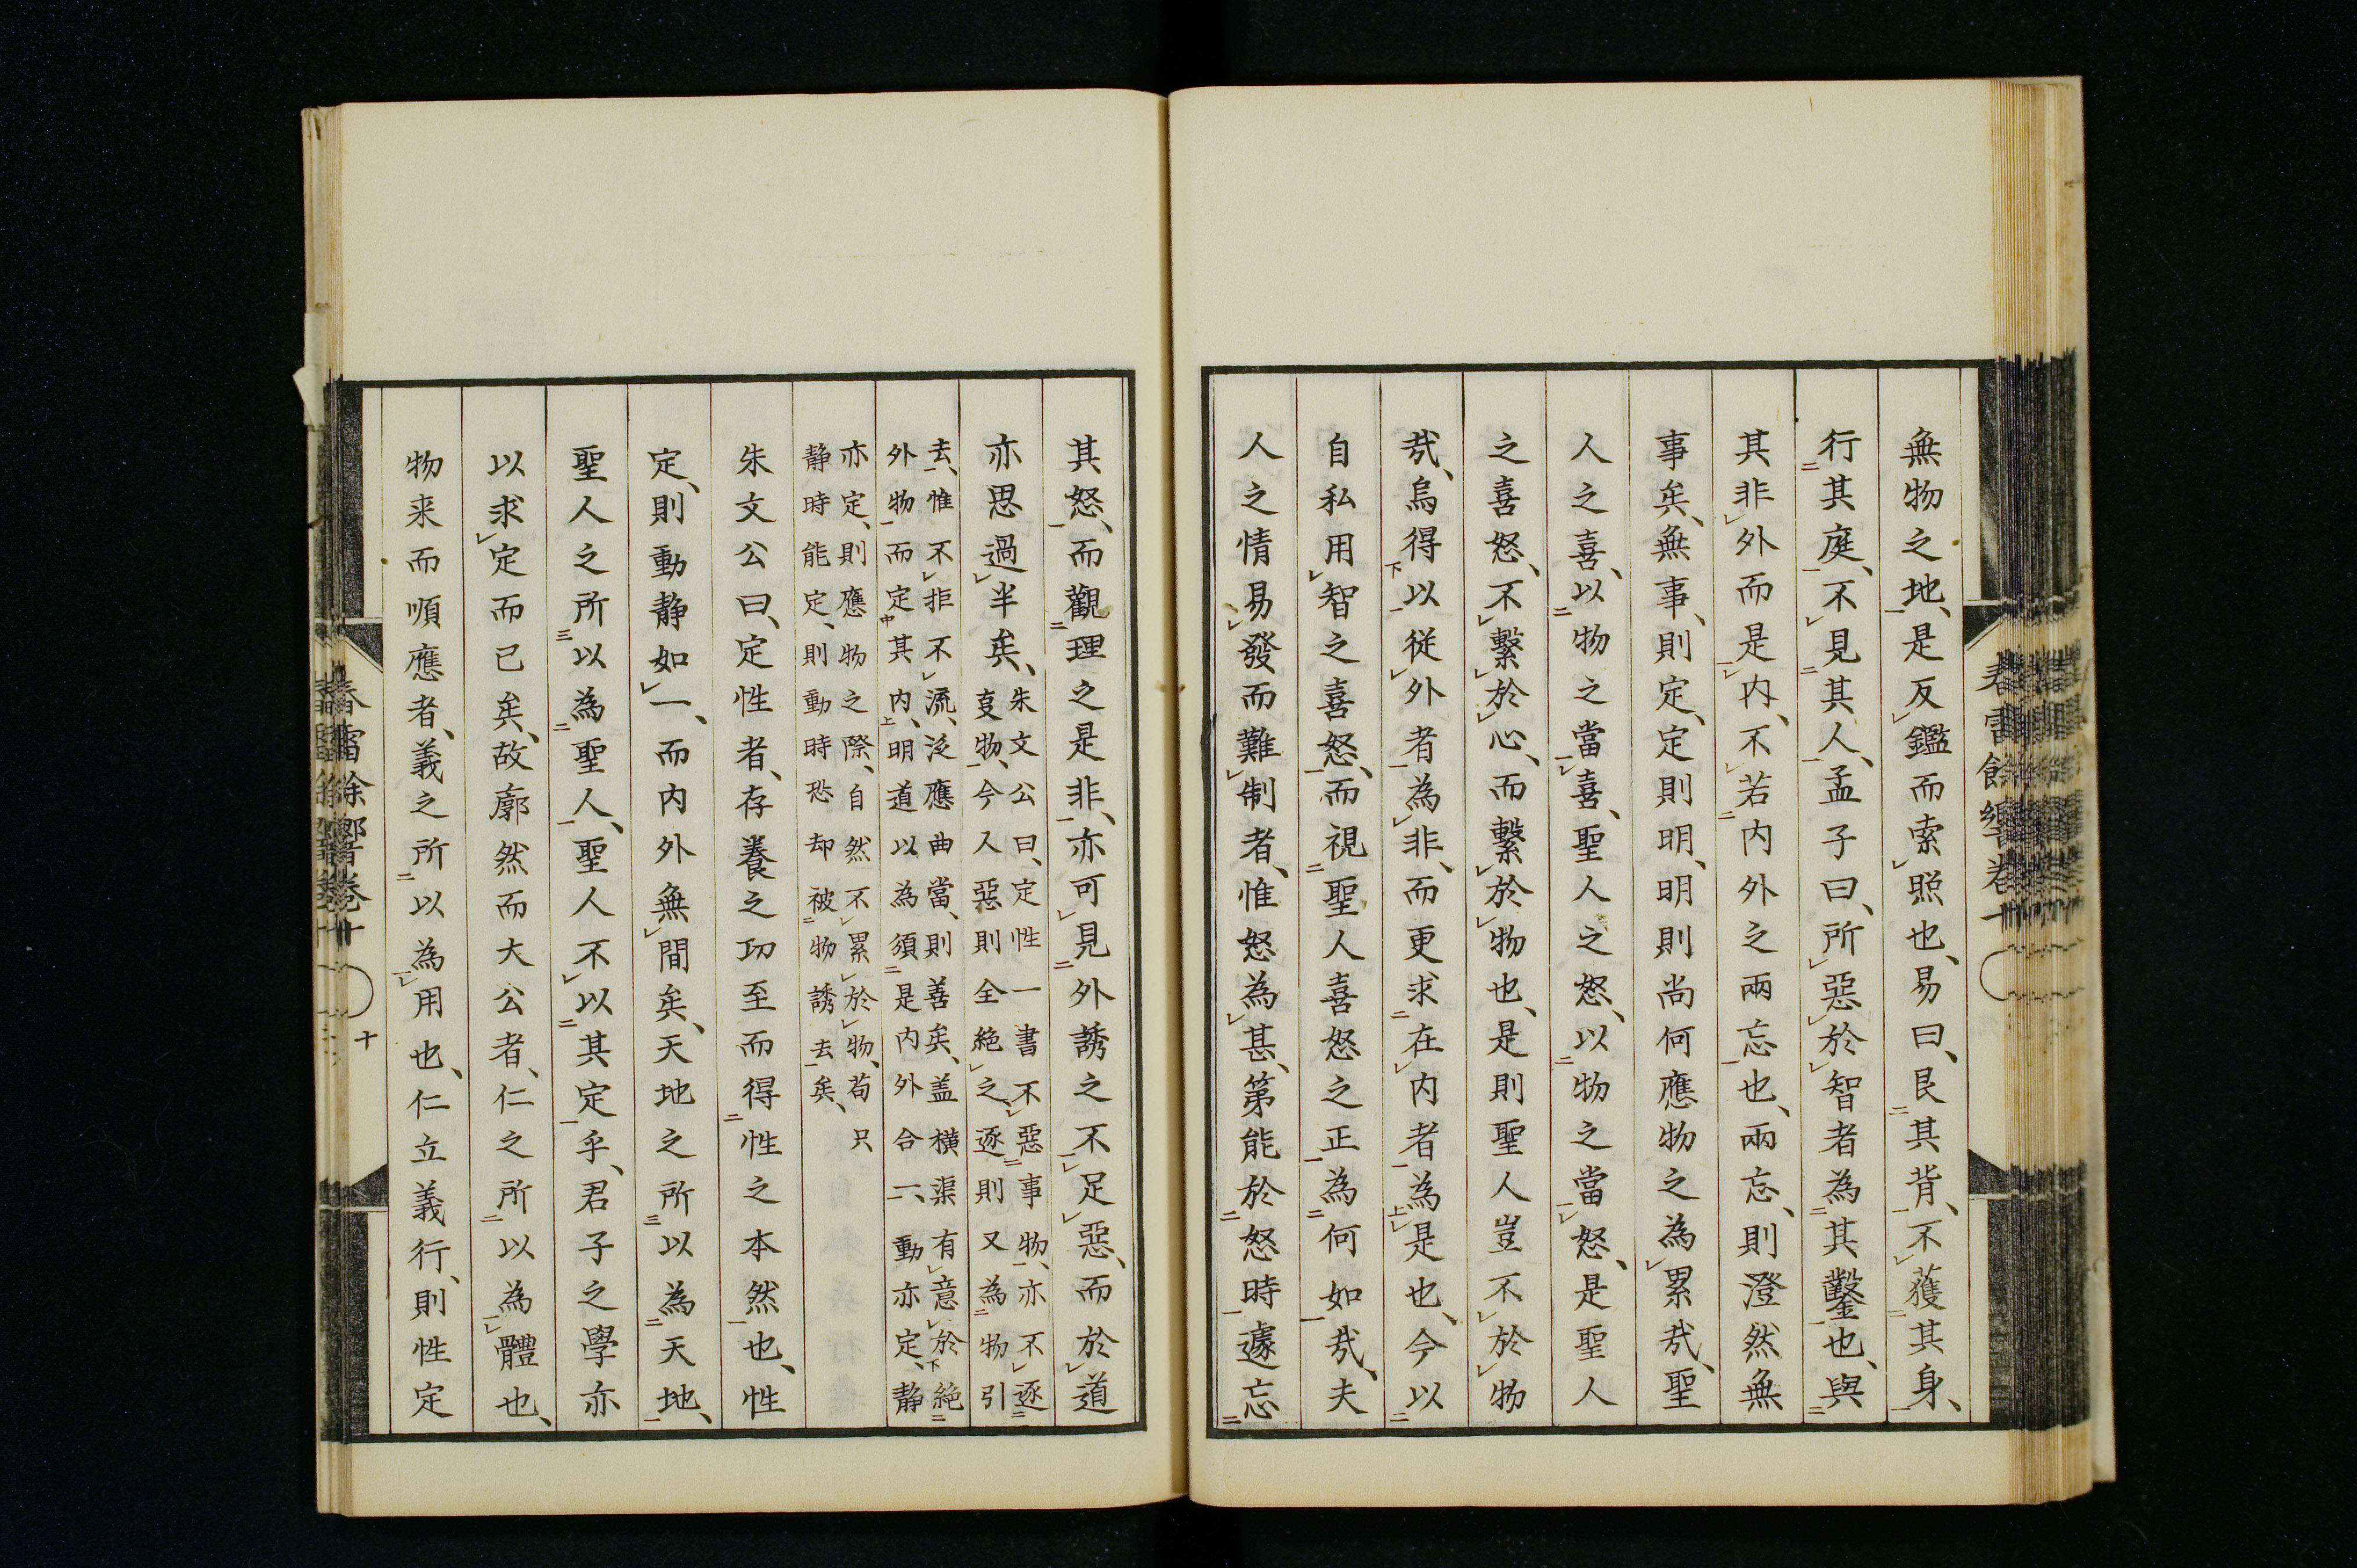 無物之地、是反鑑而索照也、易曰、艮其背、不獲其身、
行其庭、不見其人、孟子曰、所惡於智者為其鑿也、與
其非外而是内、不若内外之兩忘也、兩忘、則澄然無
事矣、無事、則定、定則明、明則尚何應物之為累㢤、聖
人之喜、以物之當喜、聖人之怒、以物之當怒、是聖人
之喜怒、不繫於心、而繫於物也、是則聖人豈不於物
㢤、烏得以従外者為非、而更求在内者為是也、今以
自私用智之喜怒、而視聖人喜怒之正為何如㢤、夫
人之情易發而難制者、惟怒為甚、第能於怒時遽忘
其怒、而觀理之是非、亦可見外誘之不足惡、而於道
亦思過半矣、
朱文公曰、定性一書不惡事物、亦不逐
事物、今人惡則全絶之、逐則又為物引
去、惟不拒不流、泛應曲當、則善矣、盖橫渠有意於絶
外物而定其内、明道以為須是内外合一、動亦定、静
亦定、則應物之際、自然不累於物、苟只
静時能定、則動時恐却被物誘去矣、
朱文公曰、定性者、存養之功至而得性之本然也、性
定、則動静如一、而内外無間矣、天地之所以為天地、
聖人之所以為聖人、聖人不以其定乎、君子之學亦
以求定而已矣、故廓然而大公者、仁之所以為體也、
物来而順應者、義之所以為用也、仁立義行、則性定
十